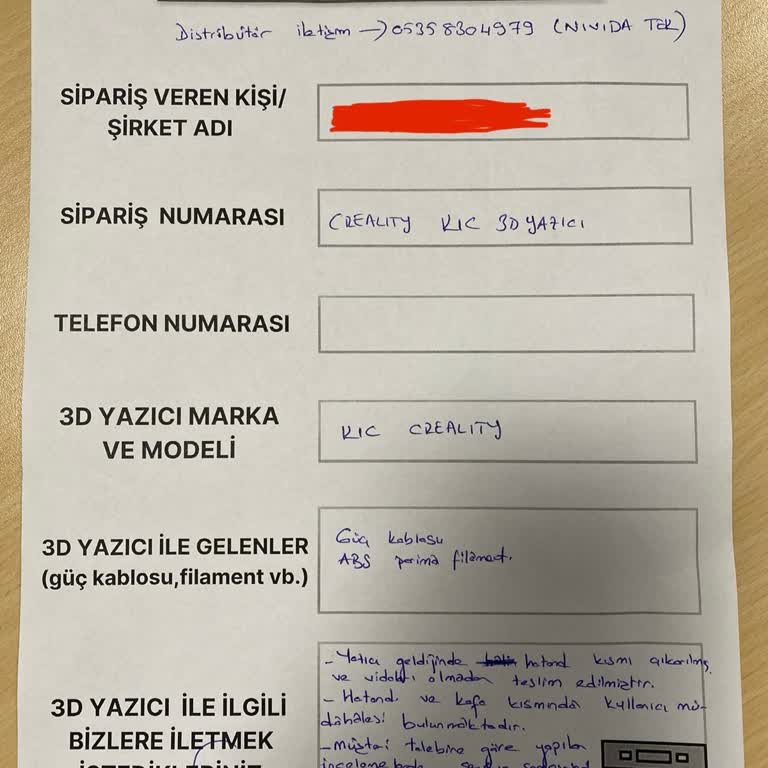 Distribütör iletişim → 05358304979 (NIVIDA TEK)
SİPARİŞ VEREN KİŞİ/
ŞİRKET ADI
SİPARİŞ NUMARASI
CREALITY K1C 3D YAZICI
TELEFON NUMARASI
3D YAZICI MARKA
VE MODELİ
K1C CREALITY
3D YAZICI İLE GELENLER
(güç kablosu,filament vb.)
Güç kablosu
ABS filament.
3D YAZICI İLE İLGİLİ
BİZLERE İLETMEK
- Yazıcı geldiğinde hotend kısmı çıkarılmış
ve vidaları olmadan teslim edilmiştir.
- Hotend ve kafa kısmında kullanıcı mü-
dahalesi bulunmaktadır.
- müşteri talebine göre yapılan